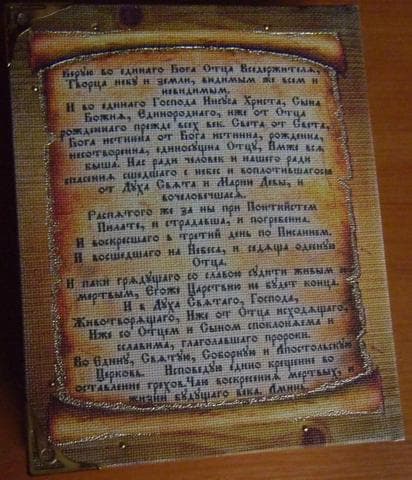 Верую во единаго Бога Отца Вседержителя,
Творца небу и земли, видимым же всем и
невидимым.
И во единаго Господа Иисуса Христа, Сына
Божия, Единороднаго, иже от Отца
рожденнаго прежде всех век. Света от Света,
Бога истинна от Бога истинна, рожденна,
несотворенна, единосущна Отцу, Имже вся
быша. Нас ради человек и нашего ради
спасения сшедшаго с небес и воплотившагося
от Духа Свята и Марии Девы, и
вочеловечшася.
Распятого же за ны при Понтийстем
Пилате, и страдавша, и погребенна.
И воскресшаго в третий день по Писанием.
И восшедшаго на Небеса, и седяща одесную
Отца.
И паки грядущаго со славою судити живым и
мертвым, Егоже Царствию не будет конца.
И в Духа Святаго, Господа,
Животворящаго, Иже от Отца исходящаго,
Иже со Отцем и Сыном споклоняема и
сславима, глаголавшаго пророки.
Во Едину, Святую, Соборную и Апостольскую
Церковь. Исповедую едино крещение во
оставление грехов. Чаю воскресения мертвых, и
жизни будущаго века. Аминь.